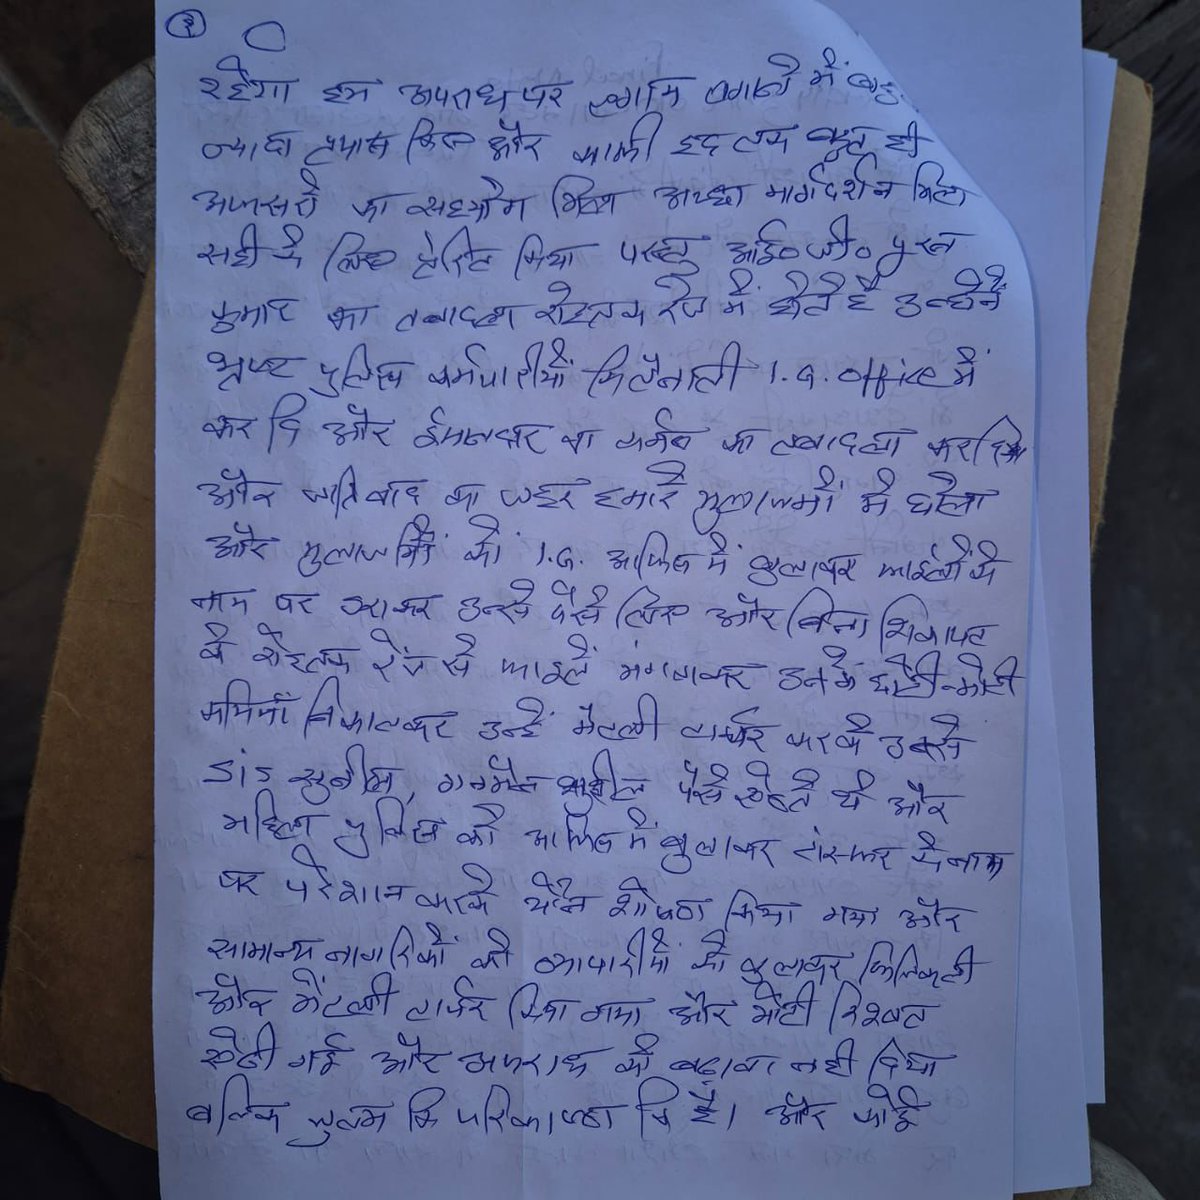 ३
रहेगा हम अपराध पर लगाम लगाने में बहु
ज्यादा प्रयास किए और काफी हद तक बहुत ही
अफसरों का सहयोग मिला अच्छा मार्गदर्शन मिला
सही के लिए प्रेरित किया परन्तु आई॰जी॰ पुरन
कुमार का तबादला रोहतक रेंज में होते है उन्होने
भ्रष्ट पुलिस कर्मचारीयों कि तैनाती I.G. office में
कर दि और ईमानदार का तबादला कर दिया
और जातिवाद का जहर हमारे मुलाजमों में घोला
और मुलाजमों को I.G. आफिस में बुलाकर फाईलों के
नाम पर डराकर उनसे पैसे लिए और बिना शिकायत
के रोहतक रेंज से फाइलें मंगवाकर उनके छोटी-मोटी
कमियाँ निकालकर उन्हें मेंटली टार्चर करके उनसे
SIS सुनील, गनमैन सुशील पैसे ऐंठते थे और
महिला पुलिस को आफिस में बुलाकर ट्रांसफर के नाम
पर परेशान करके यौन शोषण किया गया और
सामान्य नागरिकों को व्यापारीयों को बुलाकर फिजिकली
और मेंटली टार्चर किया गया और मोटी रिश्वत
ऐंठी गई और अपराध को बढ़ावा नही दिया
बल्कि जुल्म कि पराकाष्ठा कि है। और कोई